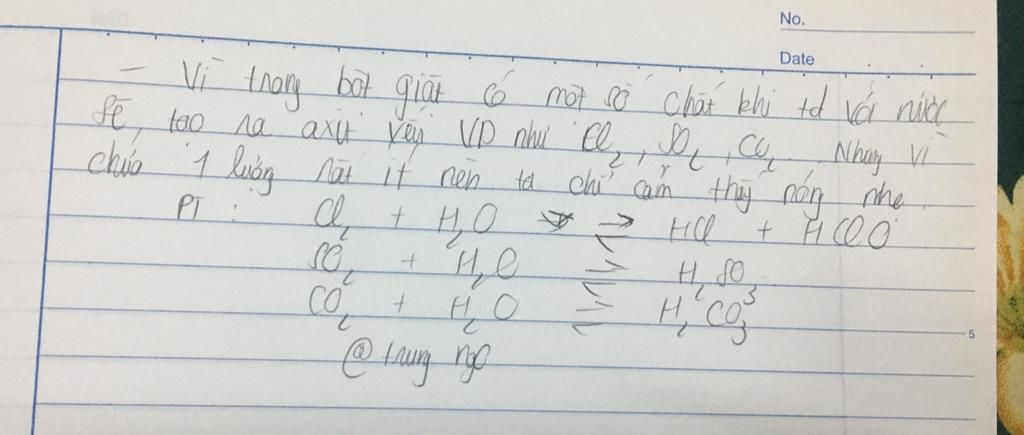 No.
Date
- Vì trong bột giặt có một số chất khi td với nước
sẽ, tạo ra axit yếu VD như Cl₂, SO₂, CO₂. Nhưng vì
chứa 1 lượng rất ít nên ta chỉ cảm thấy nóng nhẹ.
PT : Cl₂ + H₂O ⇌ HCl + HClO
SO₂ + H₂O ⇌ H₂SO₃
CO₂ + H₂O ⇌ H₂CO₃
5
@ trung ngo